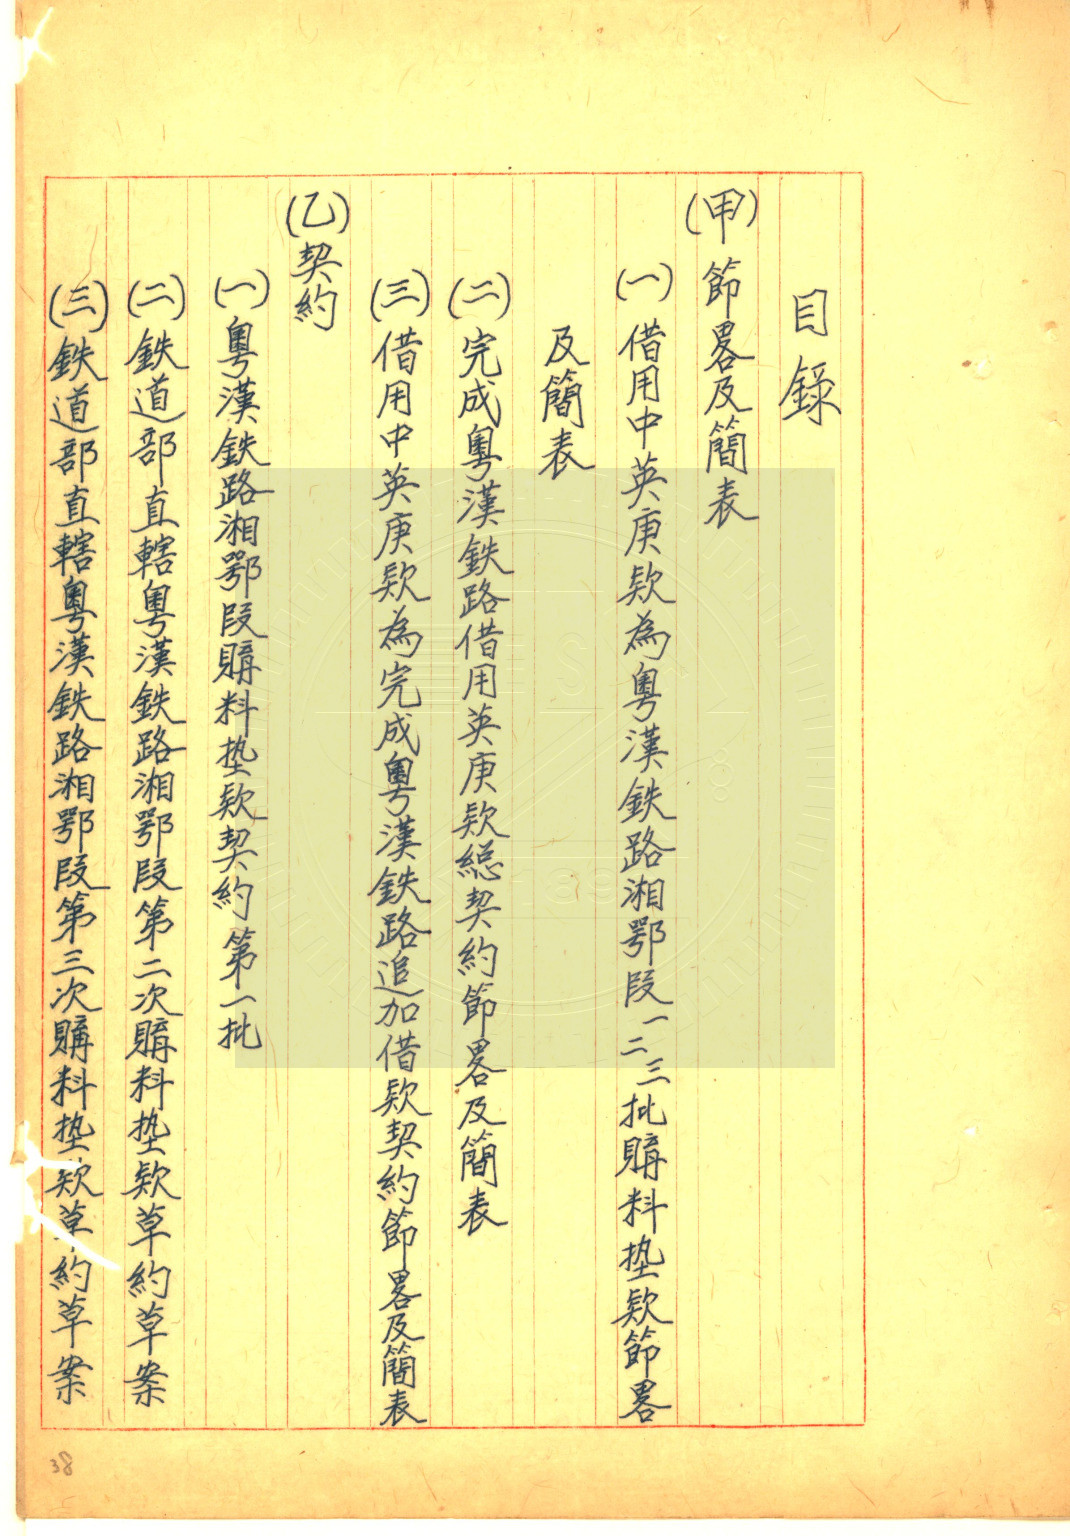 目錄
(甲)節畧及簡表
(一)借用中英庚欵為粵漢鉄路湘鄂段一二三批購料垫欵節畧
及簡表
(二)完成粵漢鉄路借用英庚欵總契約節畧及簡表
(三)借用中英庚欵為完成粵漢鉄路追加借欵契約節畧及簡表
(乙)契約
(一)粵漢鉄路湘鄂段購料垫欵契約第一批
(二)鉄道部直轄粵漢鉄路湘鄂段第二次購料垫欵草約草案
(三)鉄道部直轄粵漢鉄路湘鄂段第三次購料垫欵草約草案
38